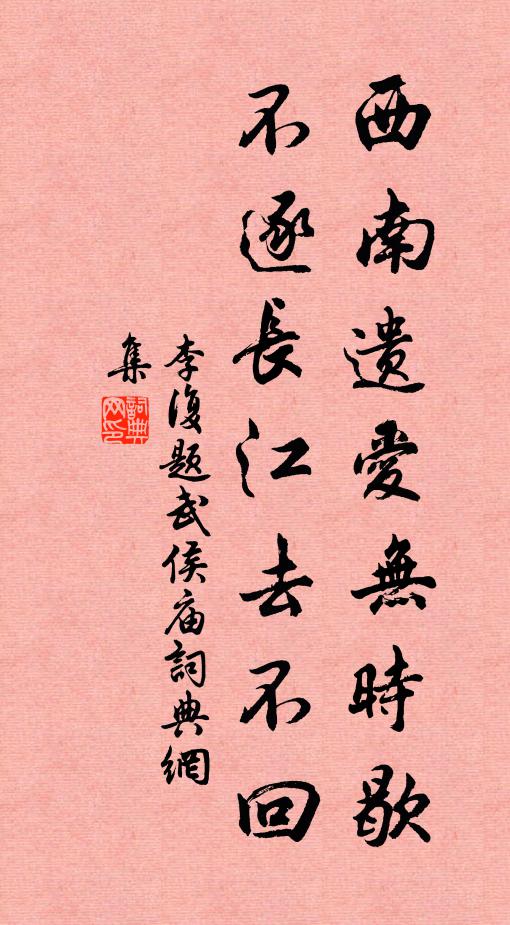 西南遺愛無時歇
不逐長江去不回
李復題武侯庙詞典網
集
詞典
网印